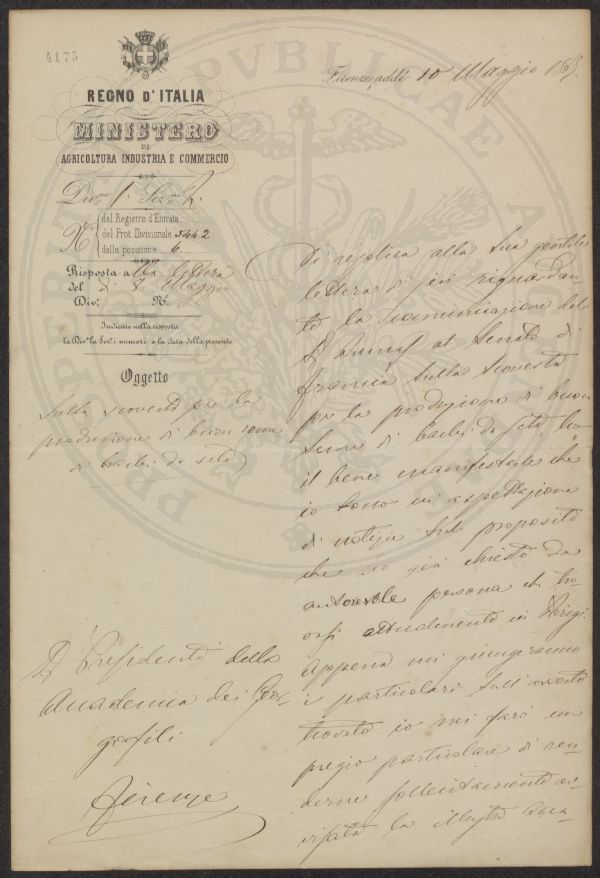 4175
REGNO D'ITALIA
MINISTERO
DI
AGRICOLTURA INDUSTRIA E COMMERCIO
Firenze, addì 10 Maggio 186
Div.ne 1ª Sez.ne
N.° del Registro d'Entrata
del Prot. Divisionale 5442
della posizione 6
Risposta alla lettera
del dì 8 Maggio
Div.e N.°
Indicare nella risposta
la Div.e la Sez.e i numeri e la data della presente
Oggetto
Sulla scoverta per la
produzione di buon seme
di bachi da seta
Il Presidente della
Accademia dei Geor-
gofili
Firenze
In replica alla sua gentile
lettera di jeri riguardan-
te la comunicazione del
Sr Dumas al Senato di
Francia sulla scoverta
per la produzione di buon
seme di bachi da seta ho
il bene manifestarle che
io sono in aspettazione
di notizie sul proposito
che ho già chiesto da
autorevole persona che tro-
vasi attualmente in Parigi.
Appena mi giungeranno
i particolari sull'asserto
trovato io mi farò un
pregio particolare di ren-
derne sollecitamente av-
visata la illustre Acca-
PRO PVBLICAE